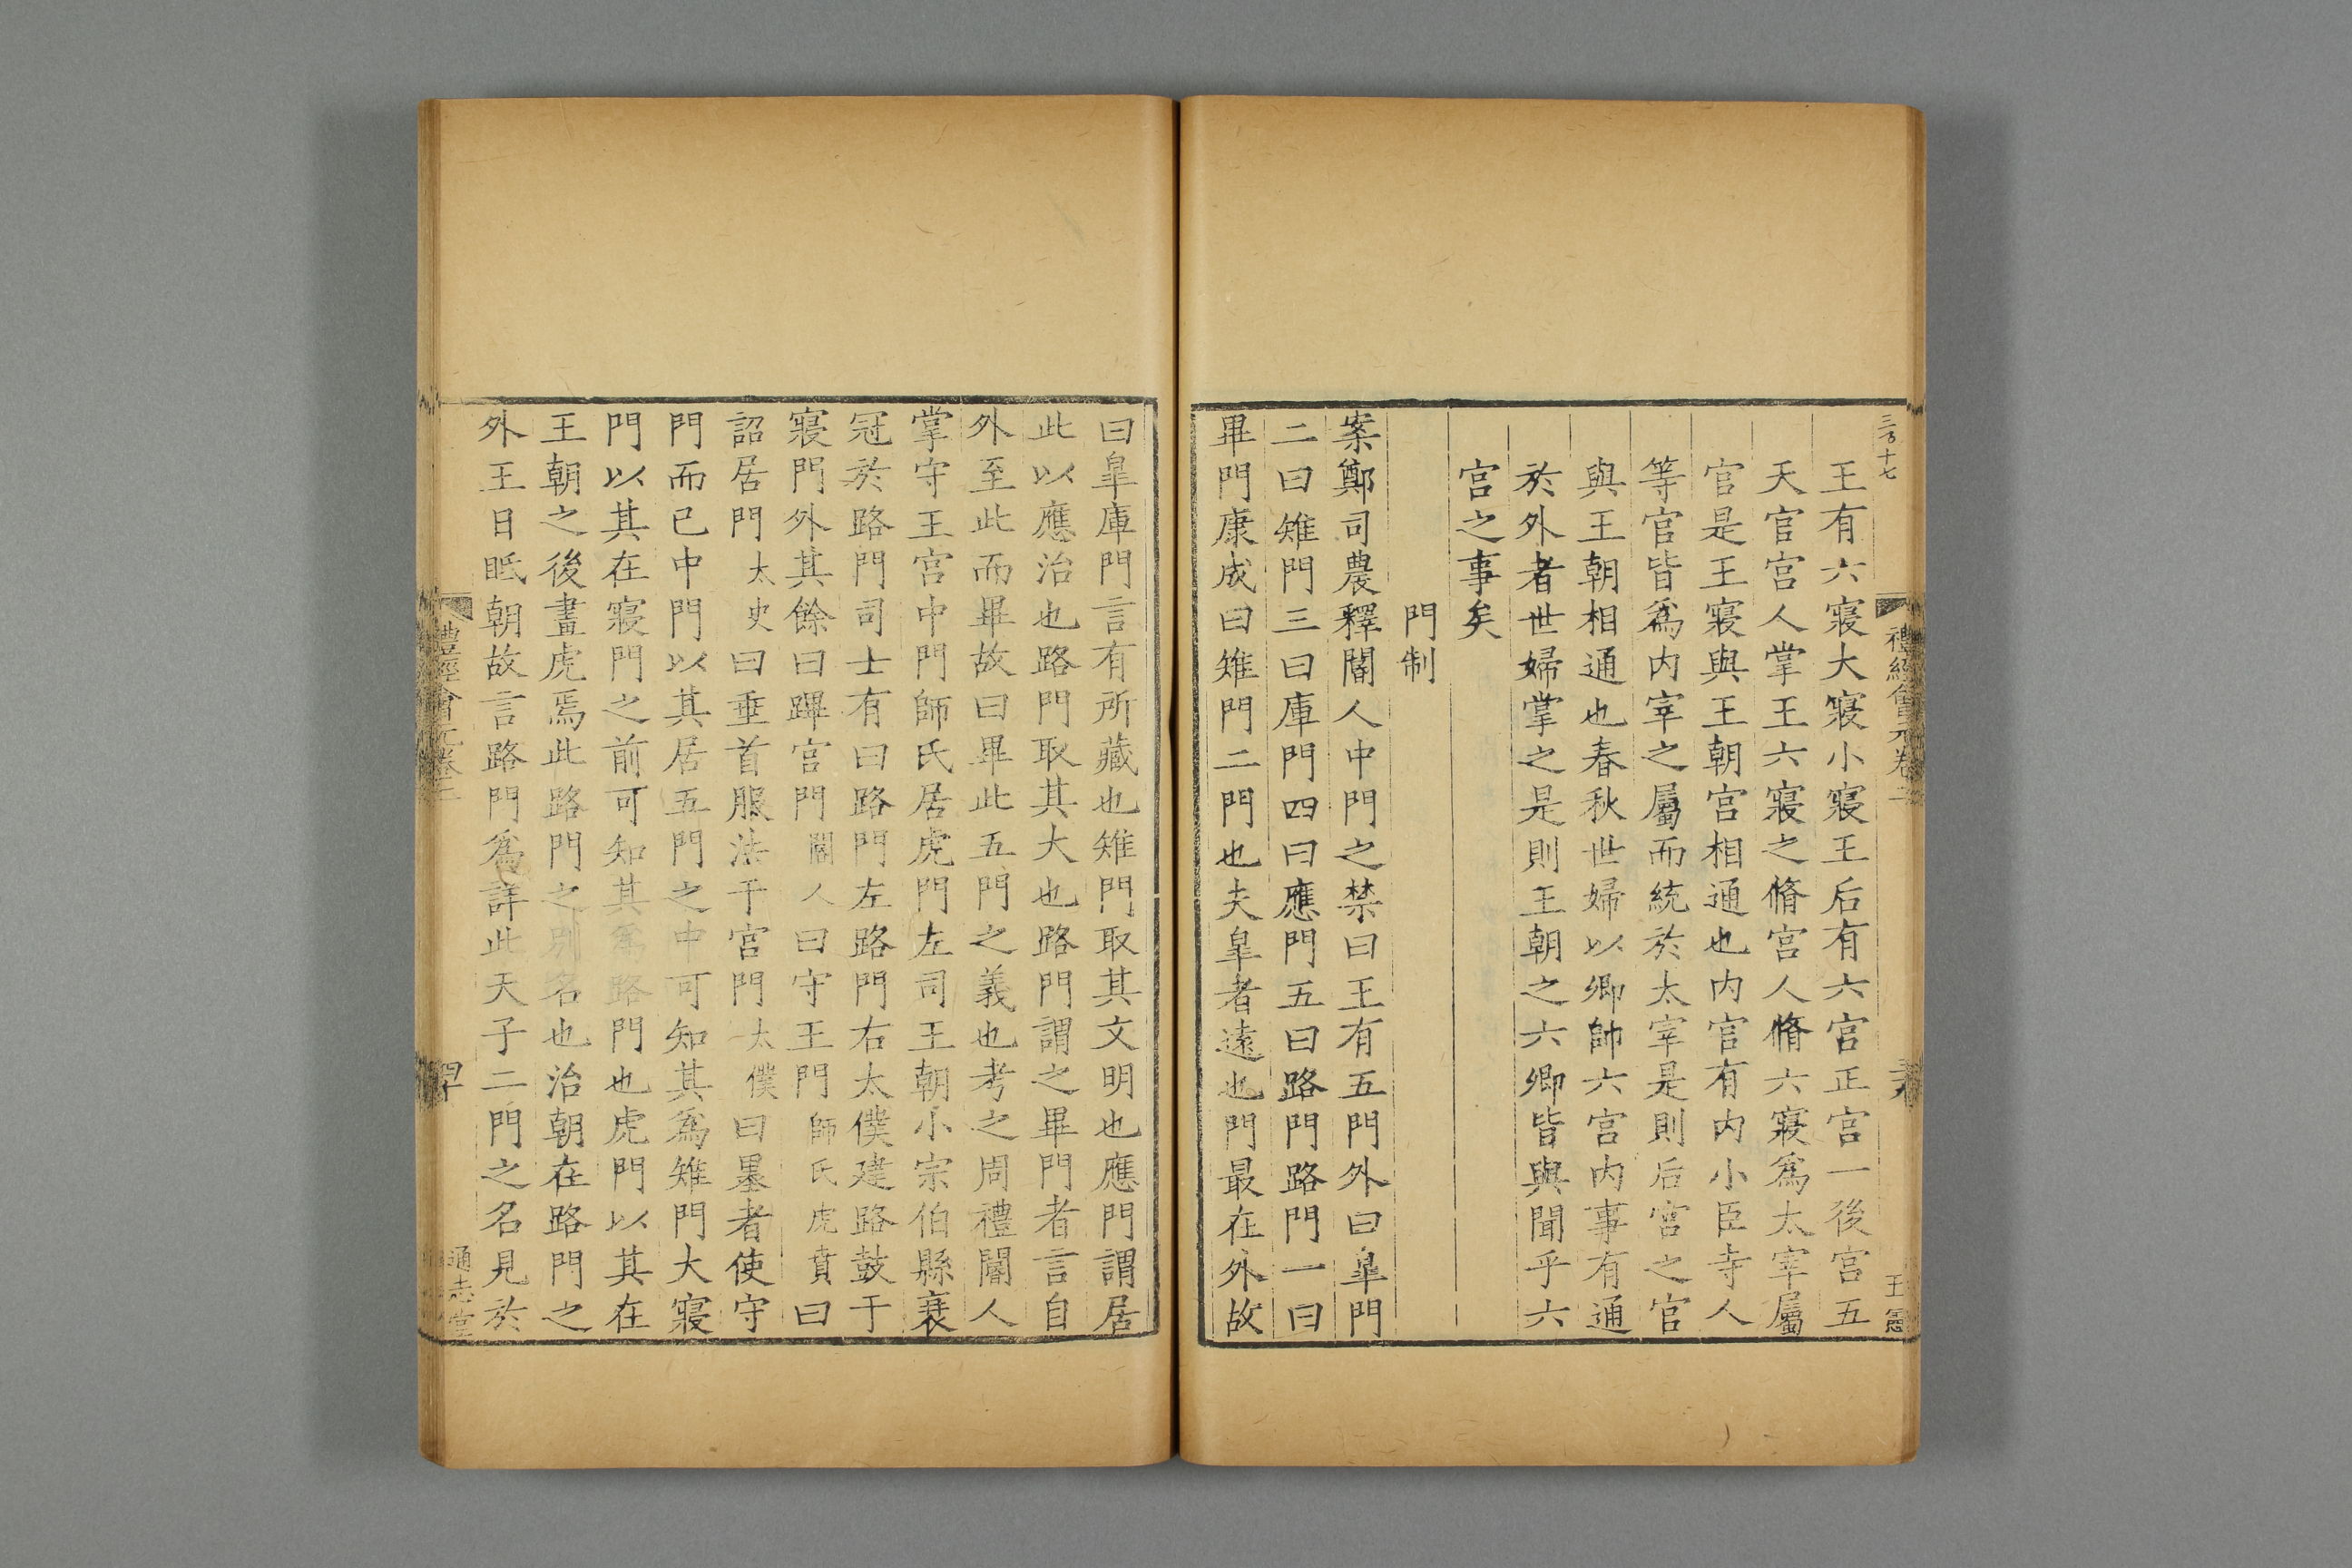 三百十七
禮經會元卷二
王有六寢大寢小寢王后有六宮正宮一後宮五
天官宮人掌王六寢之脩宮人脩六寢爲太宰屬
官是王寢與王朝宮相通也内官有内小臣寺人
等官皆爲内宰之屬而統於太宰是則后宮之官
與王朝相通也春秋世婦以卿帥六宮内事有通
於外者世婦掌之是則王朝之六卿皆與聞乎六
宮之事矣
門制
案鄭司農釋閽人中門之禁曰王有五門外曰臯門
二曰雉門三曰庫門四曰應門五曰路門路門一曰
畢門康成曰雉門二門也夫臯者遠也門最在外故
曰臯庫門言有所藏也雉門取其文明也應門謂居
此以應治也路門取其大也路門謂之畢門者言自
外至此而畢故曰畢此五門之義也考之周禮閽人
掌守王宮中門師氏居虎門左司王朝小宗伯縣衰
冠於路門司士有曰路門左路門右太僕建路鼓于
寢門外其餘曰蹕宮門閽人曰守王門師氏虎賁曰
詔居門太史曰垂首服法于宮門太僕曰墨者使守
門而已中門以其居五門之中可知其爲雉門大寢
門以其在寢門之前可知其爲路門也虎門以其在
王朝之後畫虎焉此路門之別名也治朝在路門之
外王日眡朝故言路門爲詳此天子二門之名見於
禮經會元卷二
四十
通志堂